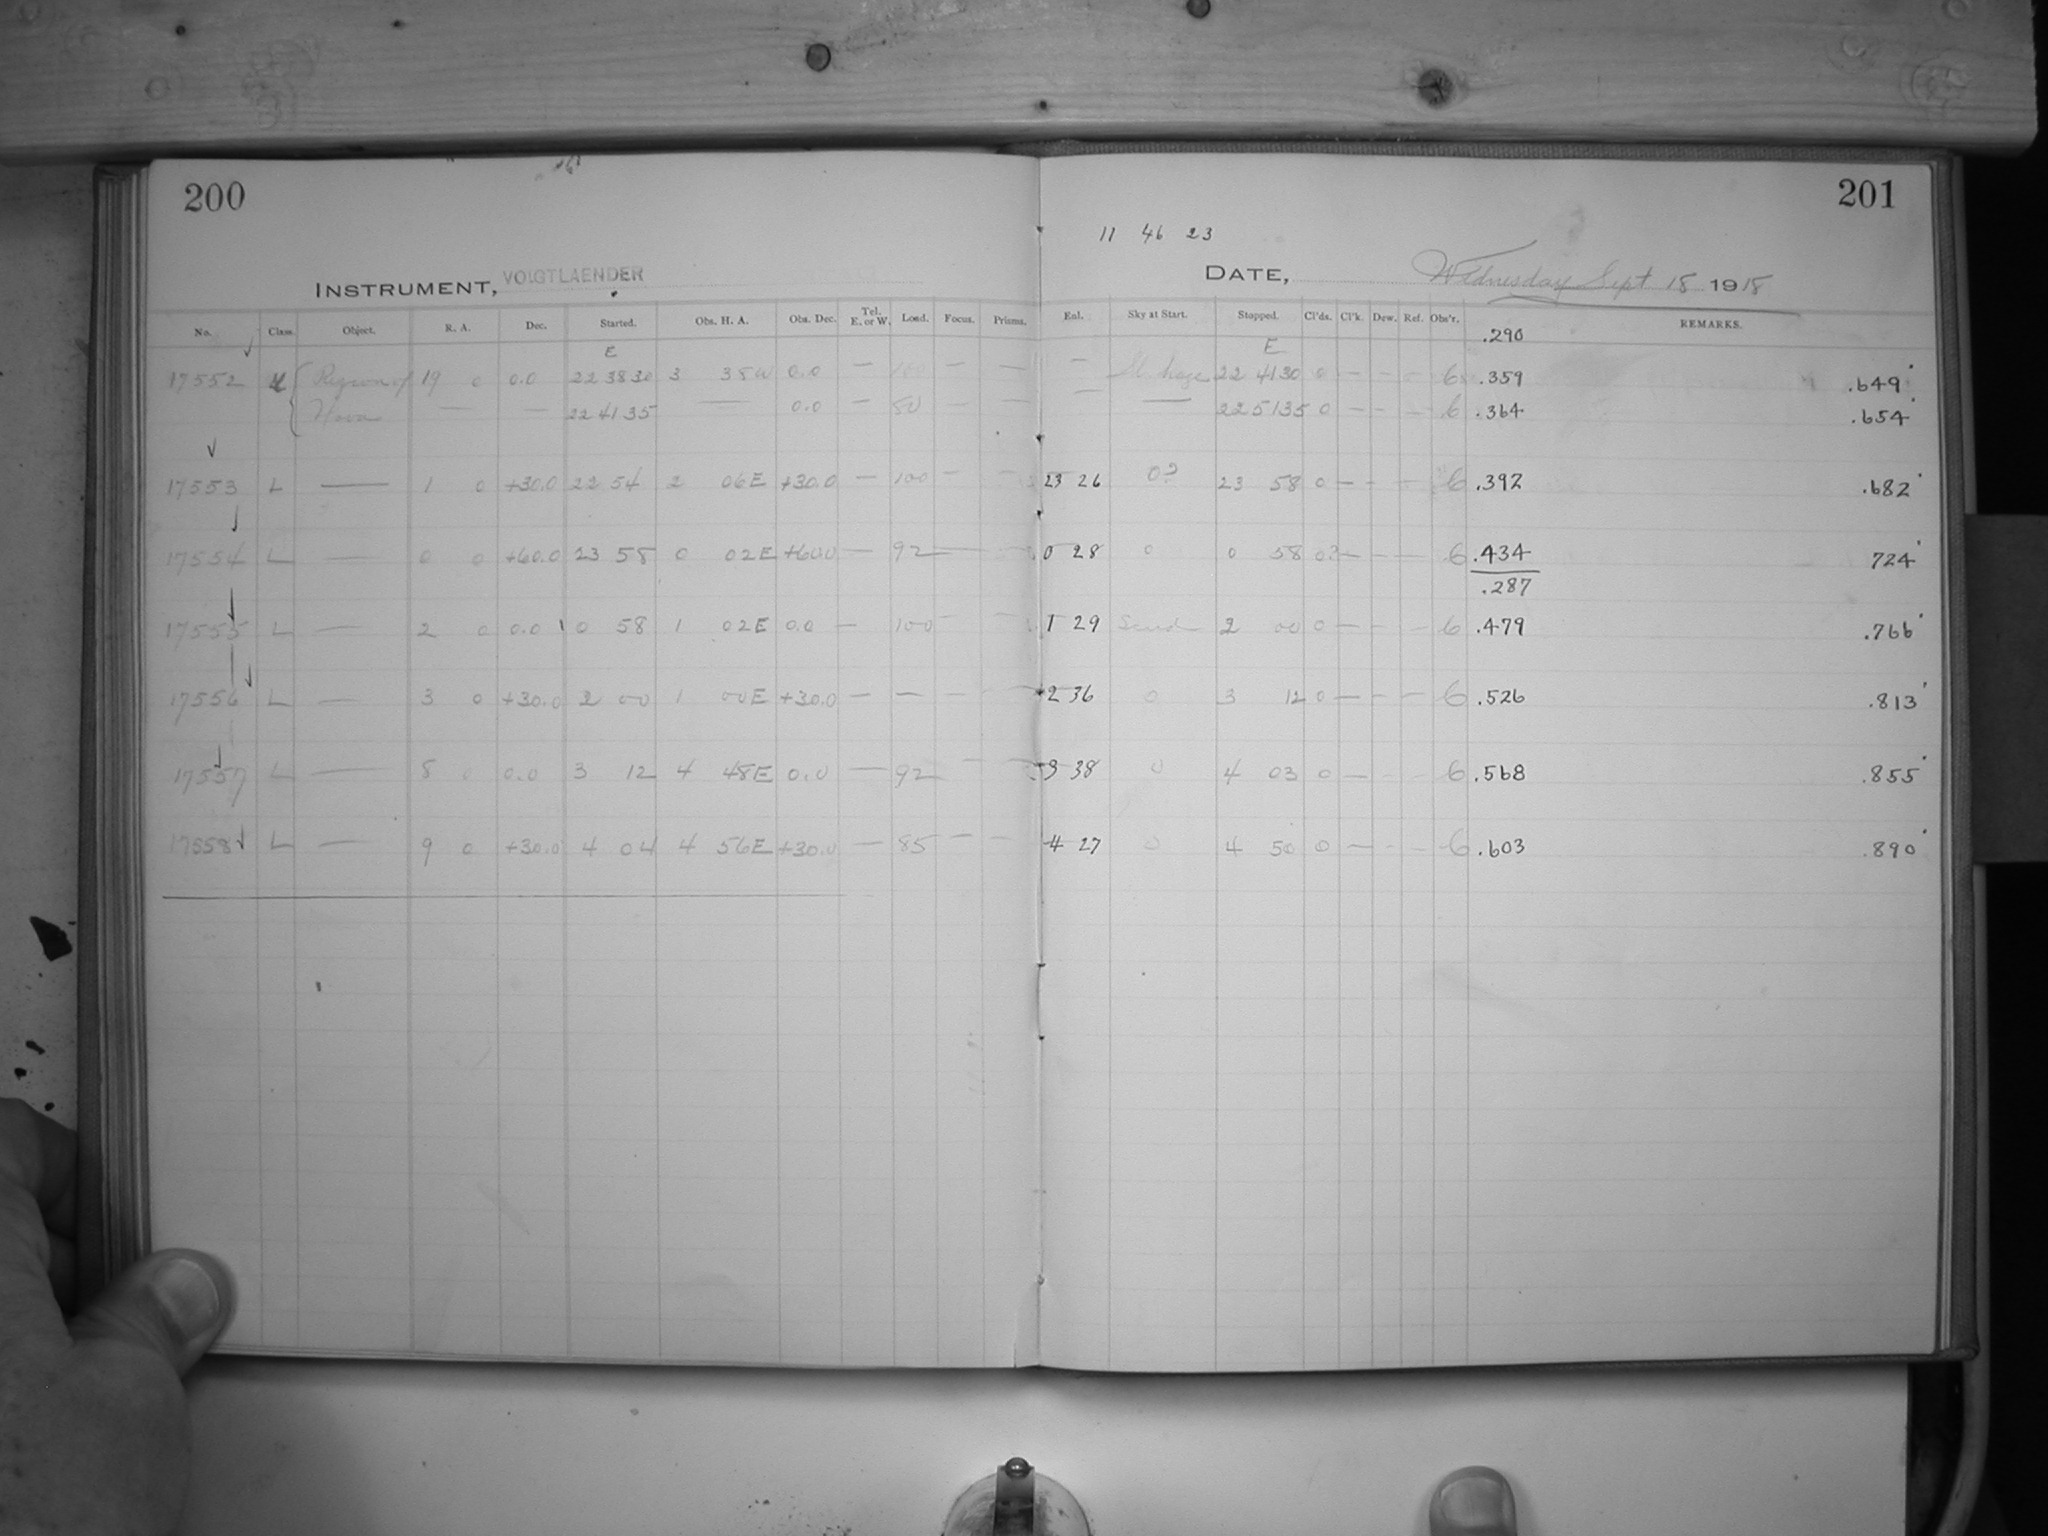 200
201
11 46 23
INSTRUMENT, VOIGTLAENDER
DATE, Wednesday Sept 18 1918
No. Class. Object. R. A. Dec. Started. Obs. H. A. Obs. Dec. Tel. E. or W. Load. Focus. Prisms. Enl. Sky at Start. Stopped. Cl'ds. Cl'k. Dew. Ref. Obs'r. REMARKS.
.290
E E
17552 Region of 19 0 0.0 22 38 30 3 38W 0.0 — 100 — — — Sl. haze 22 41 30 0 — — — 6 .359 .649
Nova — — 22 41 35 — 0.0 — 50 — — — — 22 51 35 0 — — — 6 .364 .654
17553 L — 1 0 +30.0 22 54 2 06E +30.0 — 100 — — 23 26 0? 23 58 0 — — — 6 .392 .682
17554 L — 0 0 +60.0 23 58 0 02E +60.0 — 92 — — 0 28 0 0 58 0? — — — 6 .434 724
.287
17555 L — 2 0 0.0 0 58 1 02E 0.0 — 100 — — 1 29 Scud 2 00 0 — — — 6 .479 .766
17556 L — 3 0 +30.0 2 00 1 00E +30.0 — — — — 2 36 0 3 12 0 — — — 6 .526 .813
17557 L — 8 0 0.0 3 12 4 48E 0.0 — 92 — — 3 38 0 4 03 0 — — — 6 .568 .855
17558 L — 9 0 +30.0 4 04 4 56E +30.0 — 85 — — 4 27 0 4 50 0 — — — 6 .603 .890